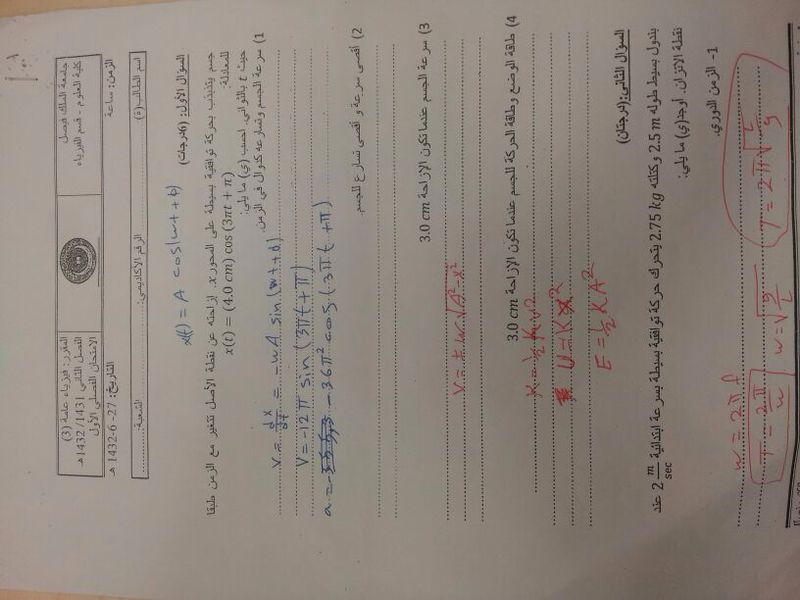 جامعة الملك فيصل
كلية العلوم - قسم الفيزياء
المقرر: فيزياء عامة (3)
الفصل الثاني 1431/ 1432 هـ
الامتحان الفصلي الأول
الزمن: ساعة
التاريخ: 27-6-1432 هـ
اسم الطالب(ة)
الرقم الأكاديمي:
الشعبة:
x(t) = A cos(wt + ϕ)
السؤال الأول: (6درجات)
جسم يتذبذب بحركة توافقية بسيطة على المحور x. إزاحته عن نقطة الأصل تتغير مع الزمن طبقا
للمعادلة:
x(t) = (4.0 cm) cos (3πt + π)
حيث t بالثواني. احسب (ي) ما يلي:
1) سرعة الجسم وتسارعه كدوال في الزمن.
v = dx/dt = -wA sin(wt+ϕ)
V = -12π sin(3πt+π)
a = -36π² cos(3πt+π)
2) أقصى سرعة و أقصى تسارع للجسم.
3) سرعة الجسم عندما تكون الإزاحة 3.0 cm
V = ± w √A²-x²
4) طاقة الوضع وطاقة الحركة للجسم عندما تكون الإزاحة 3.0 cm
K = ½ K v²
U = K x²
E = ½ K A²
السؤال الثاني: (درجتان)
بندول بسيط طوله 2.5 m وكتلته 2.75 kg يتحرك حركة توافقية بسيطة بسرعة ابتدائية 2 m/sec عند
نقطة الاتزان. أوجد(ي) ما يلي:
1- الزمن الدوري.
w = 2πf
T = 2π/w
w = √g/L
T = 2π √L/g